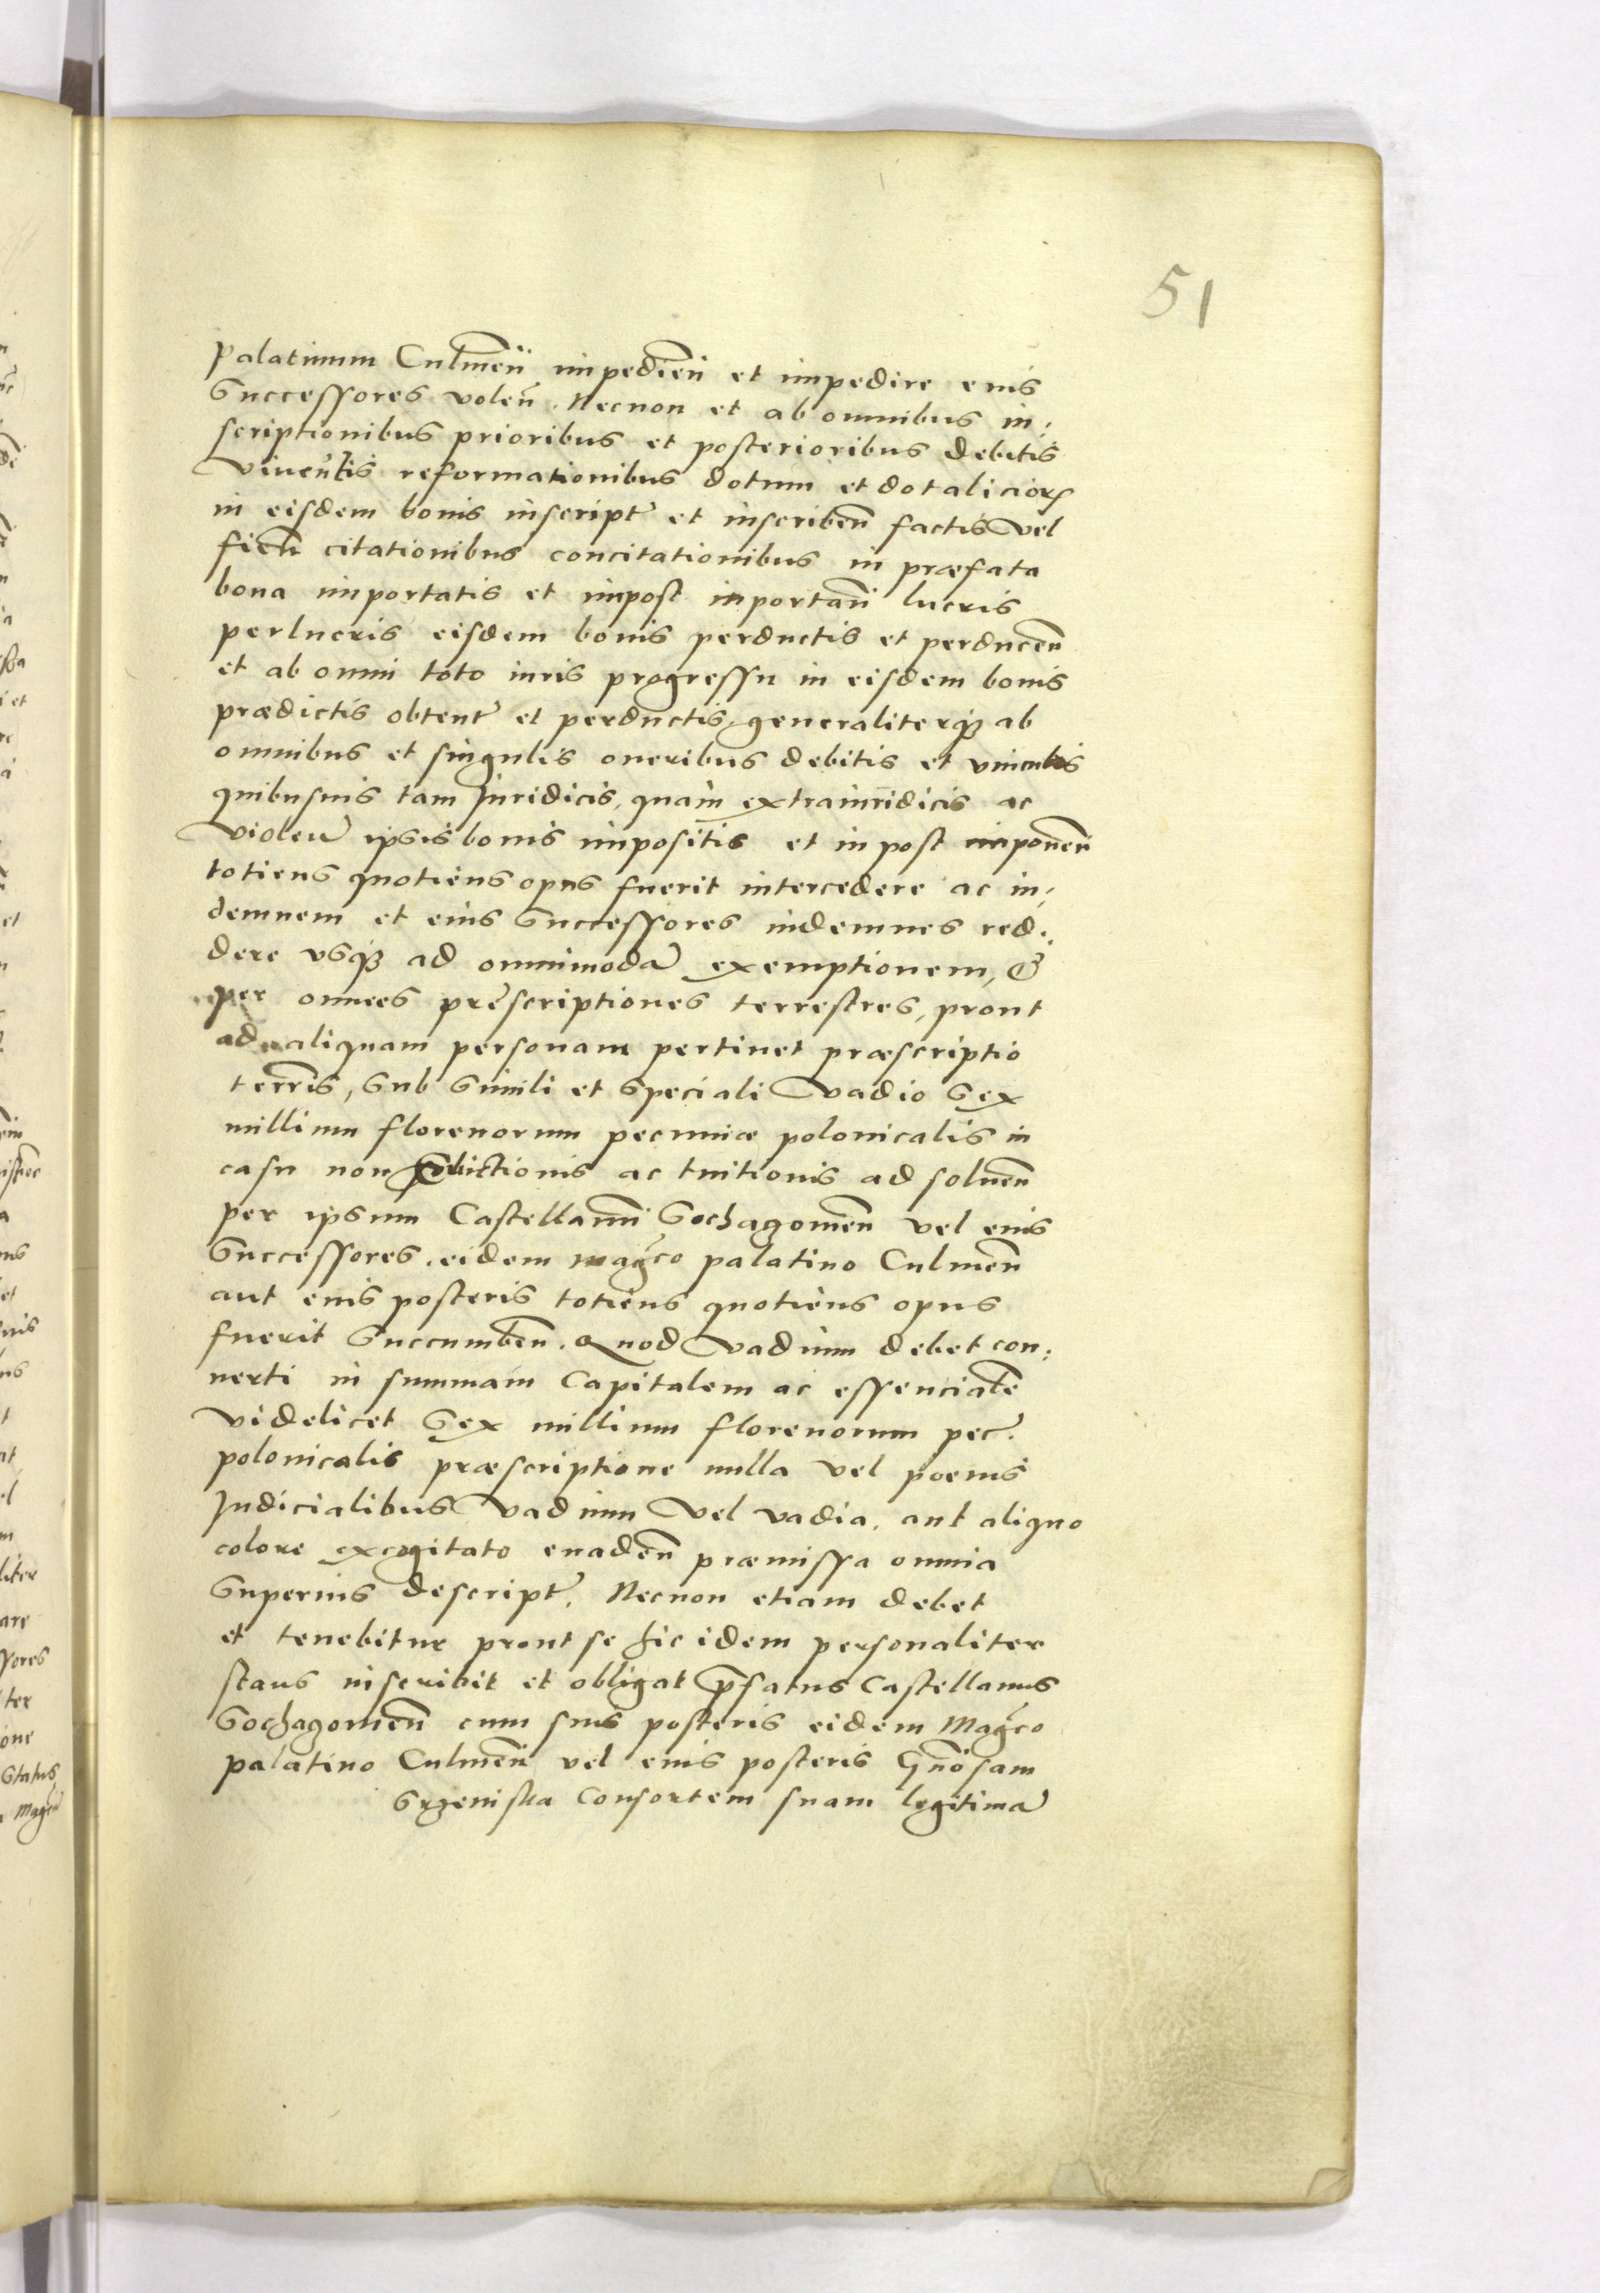 51
Palatinum Culmeñ impedieñ et impedire eius
Successores voleñ. Necnon et ab omnibus in:
scriptionibus prioribus et posterioribus debitis
viuentis reformationibus dotum et dotaliciorꝝ
in eisdem bonis inscript̃ et inscribeñ factis vel
fieñ citationibus concitationibus in præfata
bona importatis et impost importañ lucris
perlucris eisdem bonis perductis et perduceñ
et ab omni toto iuris progressu in eisdem bonis
prædictis obtent̃ et perductis, generaliterqꝫ ab
omnibus et singulis oneribus debitis et vinculis
quibusuis tam Juridicis, quam extraiuridicis ac
violeñ ipsis bonis impositis et in post imponeñ
totiens quotiens opus fuerit intercedere ac in:
demnem et eius Successores indemnes red:
dere vsqꝫ ad omnimodã exemptionem, &
per omnes prescriptiones terrestres, prout
ad aliquam personam pertinet præscriptio
terr̃is, Sub Simili et Speciali Vadio Sex
millium florenorum pecuniæ polonicalis in
casu non ac tuitionis ad solueñ
per ipsum Castellanũ Sochagomeñ vel eius
Successores. eidem Magco palatino Culmeñ
aut eius posteris totiens quotiens opus
fuerit Succumbeñ. Quod Vadium debet con:
uerti in summam Capitalem ac essencialẽ
videlicet Sex millium florenorum pec̃.
polonicalis præscriptione nulla vel poenis
Judicialibus Vadium Vel vadia. aut aliquo
colore excogitato euadeñ præmissa omnia
Superius descript̃. Necnon etiam debet
et tenebitur prout se hic idem personaliter
stans inscribit et obligat p̃fatus Castellanus
Sochagomeñ cum suis posteris eidem Magco
palatino Culmeñ vel eius posteris Gñosam
consortem suam legitimã